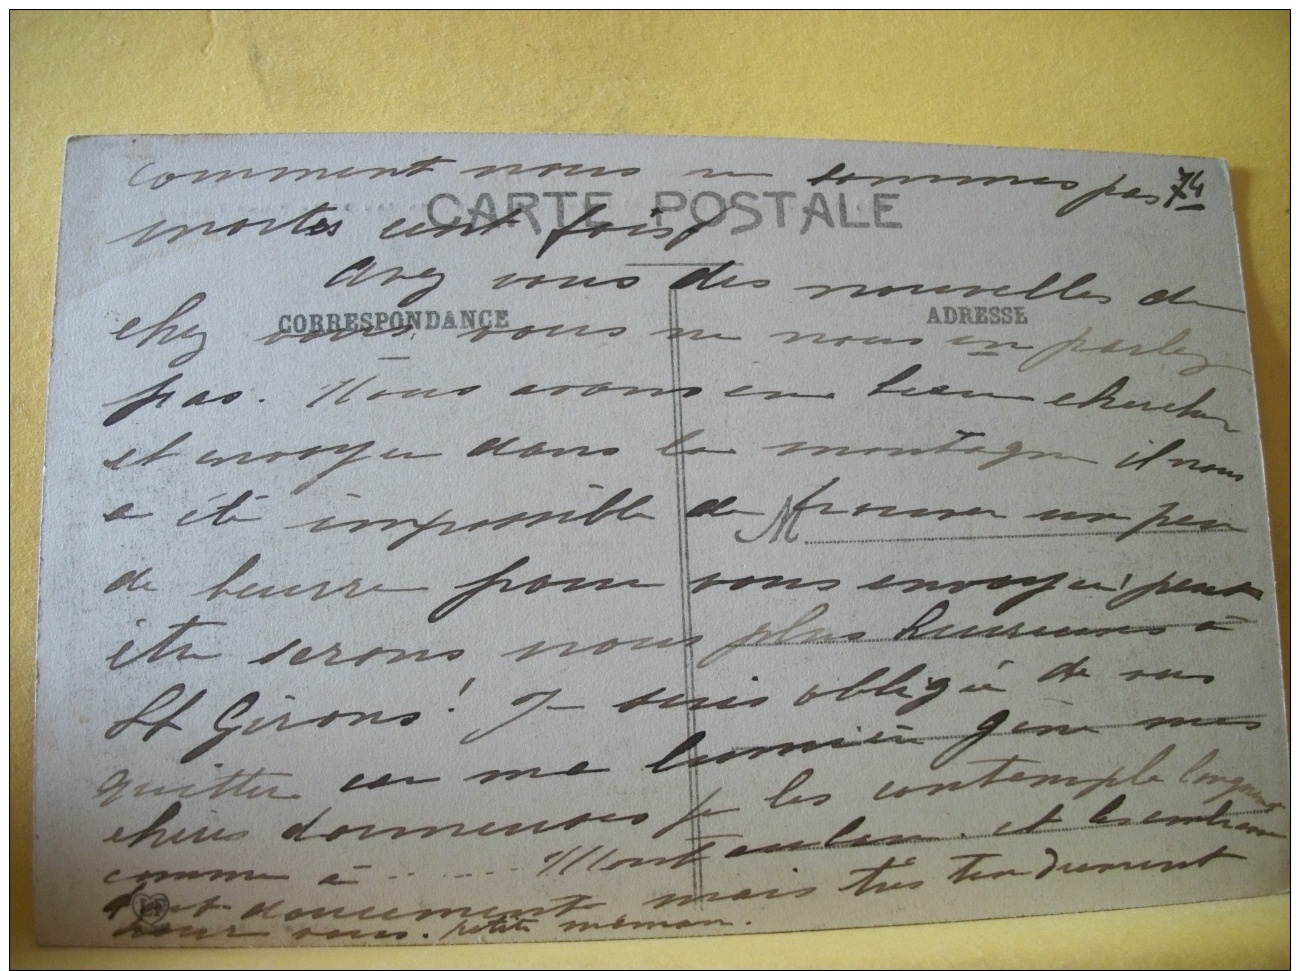 comment nous ne sommes pas 74
CARTE POSTALE
mortes cent fois,
Avez vous des nouvelles de
CORRESPONDANCE
ADRESSE
chez vous, vous ne nous en parlez
pas. Nous avons eu beau chercher
et envoyer dans la montagne il nous
a été impossible de trouver un peu
M
de beurre pour vous envoyer! peut
être serons nous plus heureuses à
St Girons! Je suis obligée de vous
quitter car ma lumière gêne mes
chères dormeuses je les contemple longuement
comme à ......... Montauban. et les embrasse
tout doucement mais très tendrement
pour vous. petite maman.